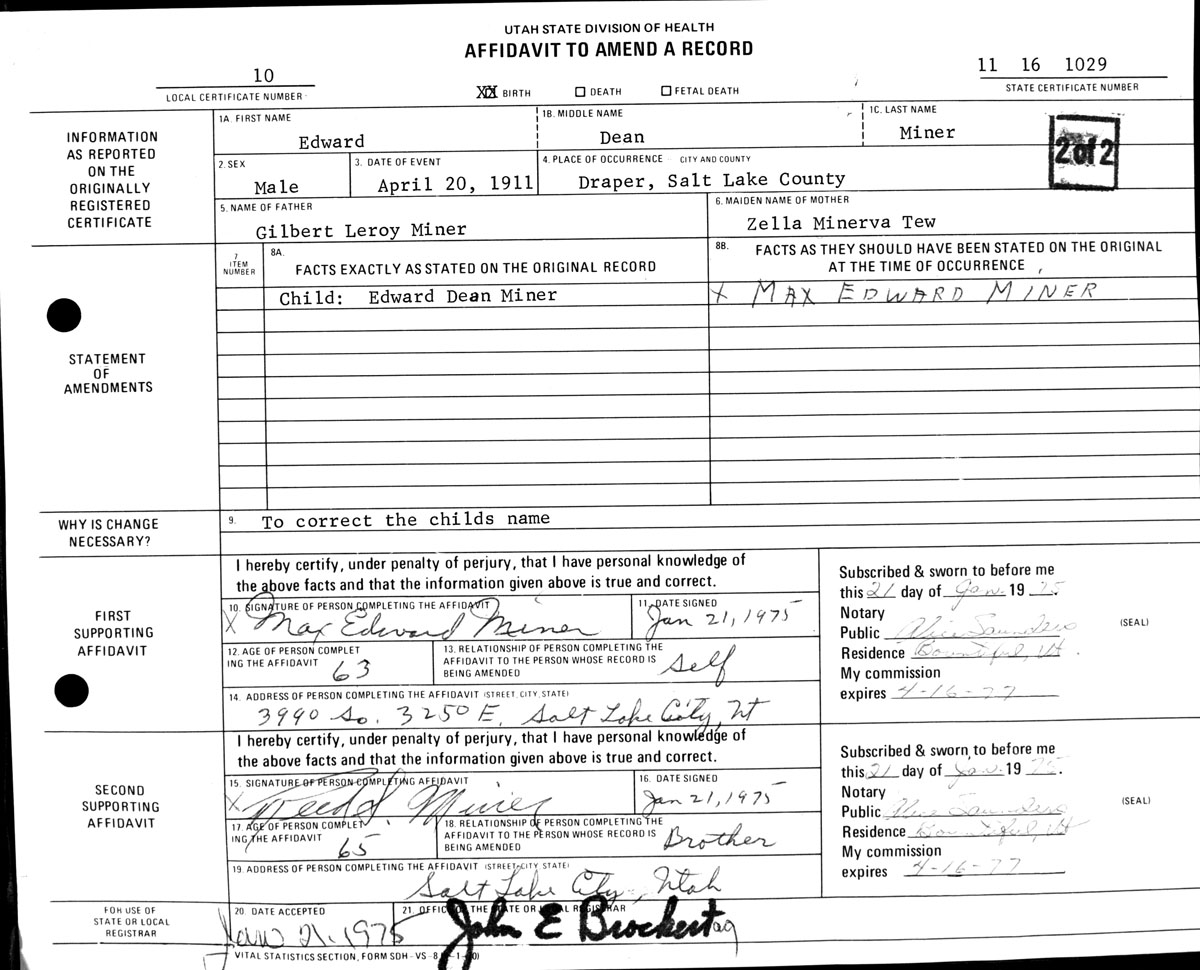 UTAH STATE DIVISION OF HEALTH
AFFIDAVIT TO AMEND A RECORD
10
LOCAL CERTIFICATE NUMBER
XX BIRTH DEATH FETAL DEATH
11 16 1029
STATE CERTIFICATE NUMBER
INFORMATION
AS REPORTED
ON THE
ORIGINALLY
REGISTERED
CERTIFICATE
1A. FIRST NAME
Edward
1B. MIDDLE NAME
Dean
1C. LAST NAME
Miner
2 of 2
2. SEX
Male
3. DATE OF EVENT
April 20, 1911
4. PLACE OF OCCURRENCE - CITY AND COUNTY
Draper, Salt Lake County
5. NAME OF FATHER
Gilbert Leroy Miner
6. MAIDEN NAME OF MOTHER
Zella Minerva Tew
STATEMENT
OF
AMENDMENTS
7
ITEM
NUMBER
8A.
FACTS EXACTLY AS STATED ON THE ORIGINAL RECORD
8B. FACTS AS THEY SHOULD HAVE BEEN STATED ON THE ORIGINAL
AT THE TIME OF OCCURRENCE
Child: Edward Dean Miner
X MAX EDWARD MINER
WHY IS CHANGE
NECESSARY?
9. To correct the childs name
FIRST
SUPPORTING
AFFIDAVIT
I hereby certify, under penalty of perjury, that I have personal knowledge of
the above facts and that the information given above is true and correct.
10. SIGNATURE OF PERSON COMPLETING THE AFFIDAVIT
X Max Edward Miner
11. DATE SIGNED
Jan 21, 1975
12. AGE OF PERSON COMPLET
ING THE AFFIDAVIT
63
13. RELATIONSHIP OF PERSON COMPLETING THE
AFFIDAVIT TO THE PERSON WHOSE RECORD IS
BEING AMENDED
Self
14. ADDRESS OF PERSON COMPLETING THE AFFIDAVIT (STREET, CITY, STATE)
3990 So. 3250 E. Salt Lake City, Ut
Subscribed & sworn to before me
this 21 day of Jan. 19 75
Notary
Public Alice Saunders
Residence Bountiful, Ut.
My commission
expires 4-16-77
(SEAL)
SECOND
SUPPORTING
AFFIDAVIT
I hereby certify, under penalty of perjury, that I have personal knowledge of
the above facts and that the information given above is true and correct.
15. SIGNATURE OF PERSON COMPLETING AFFIDAVIT
X Miner
16. DATE SIGNED
Jan 21, 1975
17. AGE OF PERSON COMPLET
ING THE AFFIDAVIT
65
18. RELATIONSHIP OF PERSON COMPLETING THE
AFFIDAVIT TO THE PERSON WHOSE RECORD IS
BEING AMENDED
Brother
19. ADDRESS OF PERSON COMPLETING THE AFFIDAVIT (STREET, CITY, STATE)
Salt Lake City, Utah
Subscribed & sworn to before me
this 21 day of Jan. 19 75.
Notary
Public Alice Saunders
Residence Bountiful, Ut
My commission
expires 4-16-77
(SEAL)
FOR USE OF
STATE OR LOCAL
REGISTRAR
20. DATE ACCEPTED
Jan 21, 1975
21. OFFICE OF THE STATE OR LOCAL REGISTRAR
John E Brockert
VITAL STATISTICS SECTION, FORM SDH-VS-8